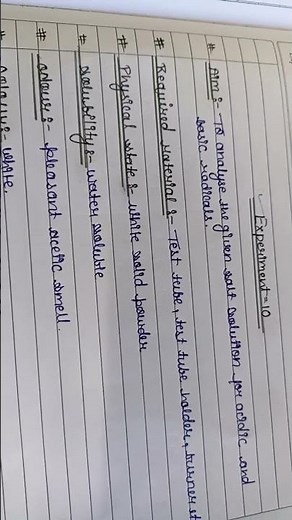 Experiment-10
# Aim:- To analyse the given salt solution for acidic and
basic radicals.
# Required Material:- Test tube, test tube holder, burner
# Physical state:- white solid powder
# Solubility:- water soluble
# odour:- pleasant acetic smell.
# colour:- white.